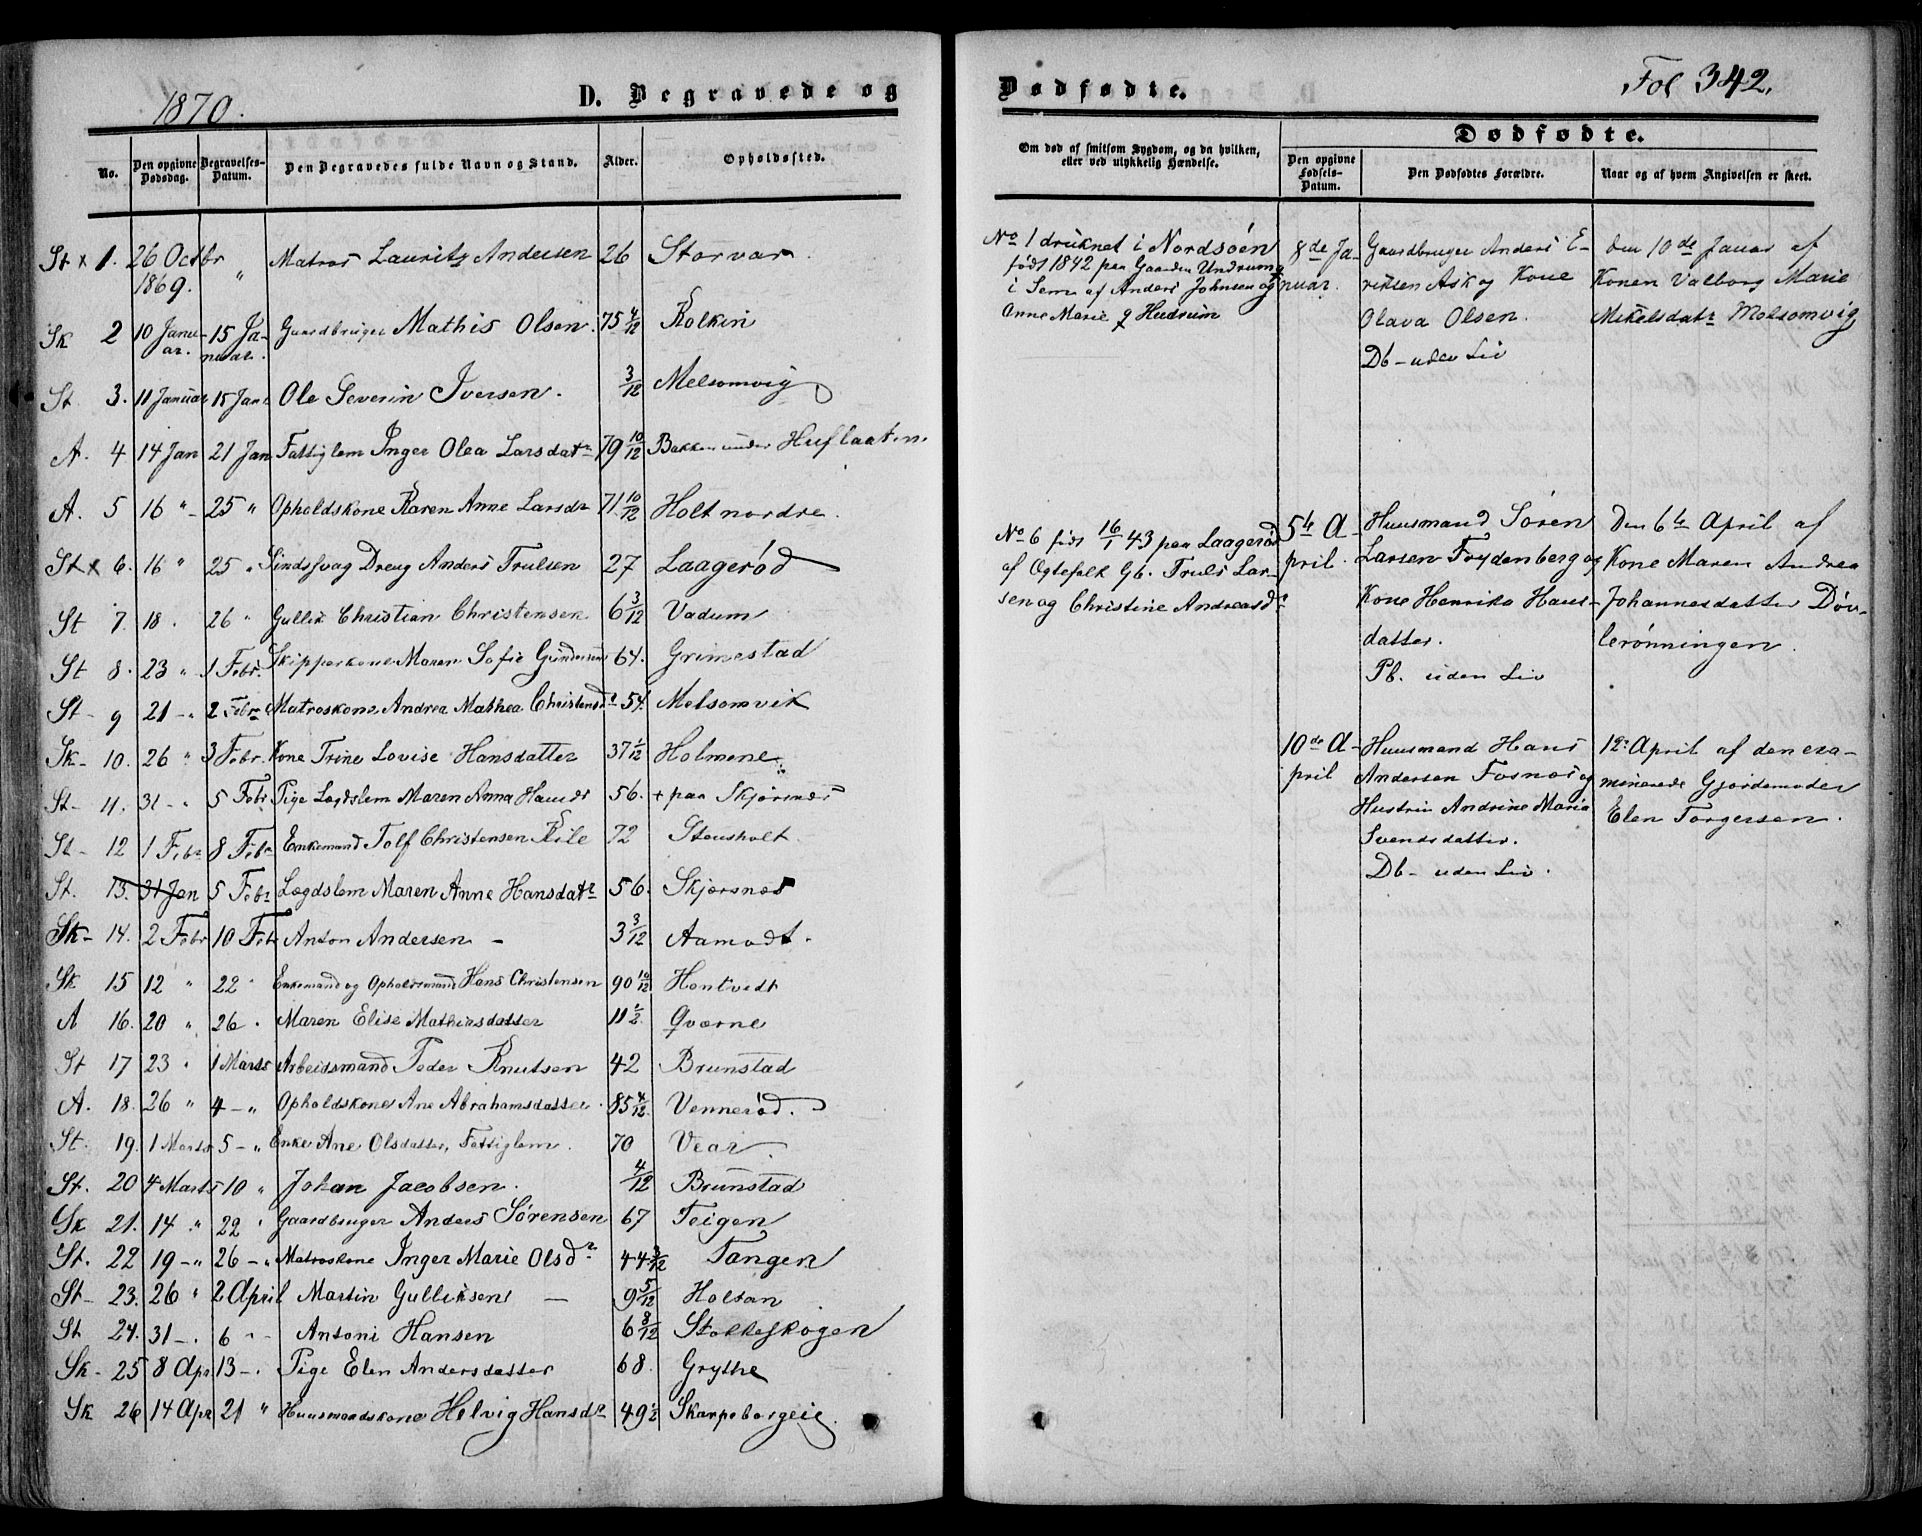 1870.
D. Begravede og
No.
Den opgivne Dødsdag.
Begravelses-Datum.
Den Begravedes fulde Navn og Stand.
Alder.
Opholdssted.
St x 1. 26 Octbr 1869. " Matros Lauritz Andersen 26 Storvar
Sk 2 10 Januar. 15 Januar. Gaardbruger Mathis Olsen 75 4/12 Rolkin
St 3. 11 Januar 15 Jan Ole Severin Iversen. 3/12 Melsomvig
A. 4 14 Jan 21 Jan Fattiglem Inger Olea Larsdatr 79 10/12 Bakken under Huflaaten
A. 5 16 " 25 " Opholdskone Karen Anne Larsdr 71 10/12 Holt nordre.
St x 6. 16 " 25 " Sindsvag Dreng Anders Trulsen 27 Laagerød
St 7. 18 . 26 " Gullik Christian Christensen. 6 3/12 Vadum
St 8. 23 " 1 Febr. Skipperkone Maren Sofie Gundersen 64. Grimestad
St - 9 21 - " 2 Febr Matroskone Andrea Mathea Christensdr 54. Melsomvik
Sk - 10. 26 " 3 Febr. Kone Trine Lovise Hansdatter 37 1/12 Holmene
St - 11. 31 - " 5 Febr Pige Lægdslem Maren Anna Hansdr 56. + paa Skjærsnæs
St - 12 1 Febr 8 Febr Enkemand Tolf Christensen Kile 72 Stensholt
St. 13. 31 Jan 5 Febr Lægdslem Maren Anne Hansdatr 56. Skjærsnæs
Sk - 14. 2 Febr 10 Febr Anton Andersen - 3 3/12 Aamodt.
Sk 15 12 " 22 " Enkemand og Opholdsmand Hans Christensen 90 10/12 Hontvedt
A 16. 20 " 26 . Maren Elise Mathiasdatter 11 1/2 Qværne
St 17 23 " 1 Marts Arbeidsmand Peder Knutsen 42 Brunstad
A. 18. 26 " 4 - " Opholdskone Ane Abrahamsdatter. 85 4/12. Vennerød.
St. 19. 1 Marts 5 - " Enke Ane Olsdatter, Fattiglem. 70 Vear.
St. 20 4 Marts 10 " Johan Jacobsen. 4/12 Brunstad
Sk 21. 14 " 22 " Gaardbruger Anders Sørensen 67 Teigen
St. 22 19 - " 26 - " Matroskone Inger Marie Olsdr 44 3/12 Tangen
St - 23. 26 " 2 April Martin Gulliksen - 9 5/12 Holtan
St 24. 31 - . 6 " - Antoni Hansen 6 8/12 Stokkeskogen
Sk - 25 8 Apr 13 - . Pige Elen Andersdatter 68. Grythe
Sk 26 14 Apr 21 " Huusmandskone Helvig Hansdr 49 1/2 Skarpeborgeie.
Dødfødte.
Fol 342.
Om død af smitsom Sygdom, og da hvilken, eller ved ulykkelig Hændelse.
Dødfødte.
Den opgivne Fødsels-Datum.
Den Dødfødtes Forældre.
Naar og af hvem Angivelsen er skeet.
No 1 druknet i Nordsøen
født 1842 paa Gaarden Undrum
i Sem af Anders Johnsen og
Anne Marie
8de Januar.
Gaardbruger Anders E-
riksen Ask og Kone
Olava Olsen.
Db - uden Liv
den 10de Januar af
Konen Valborg Marie
Mikelsdatr Melsomvig
No 6 født 16/1 43 paa Laagerød
af Ægtefolk Gb. Truls Lar-
sen og Christine Andreasdr
5te A-
pril.
Huusmand Søren
Larsen Frydenberg og
Kone Henrika Hans-
datter.
Pb. uden Liv
Den 6te April af
Kone Maren Andrea
Johannesdatter Døv-
lerønningen.
10de A-
pril
Huusmand Hans
Andersen Fosnæs og
Hustru Andrine Maria
Svendsdatter.
Db - uden Liv.
12. April af den exa-
minerede Gjordemoder
Elen Torgersen.